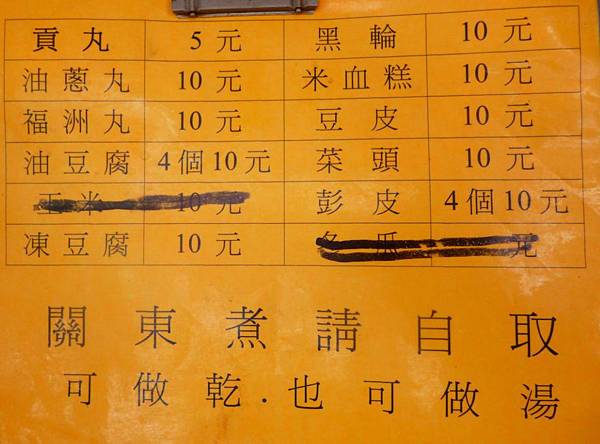 貢丸 5元 黑輪 10元
油蔥丸 10元 米血糕 10元
福洲丸 10元 豆皮 10元
油豆腐 4個10元 菜頭 10元
玉米 10元 彭皮 4個10元
凍豆腐 10元 冬瓜 元
關東煮請自取
可做乾.也可做湯